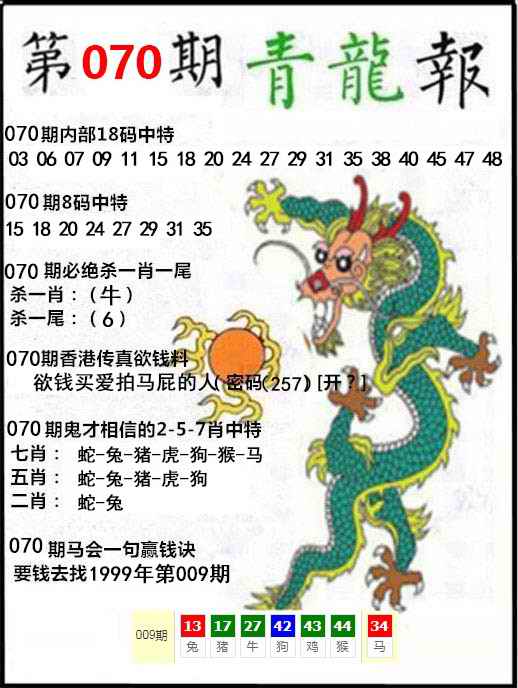 第070期青龍報
070期内部18码中特
03 06 07 09 11 15 18 20 24 27 29 31 35 38 40 45 47 48
070期8码中特
15 18 20 24 27 29 31 35
070 期必绝杀一肖一尾
杀一肖：（牛）
杀一尾：（6）
070期香港传真欲钱料
欲钱买爱拍马屁的人( 密码(257) [开？]
070期鬼才相信的2-5-7肖中特
七肖： 蛇-兔-猪-虎-狗-猴-马
五肖： 蛇-兔-猪-虎-狗
二肖： 蛇-兔
070期马会一句赢钱诀
要钱去找1999年第009期
009期 13 17 27 42 43 44 34
兔 猪 牛 狗 鸡 猴 马